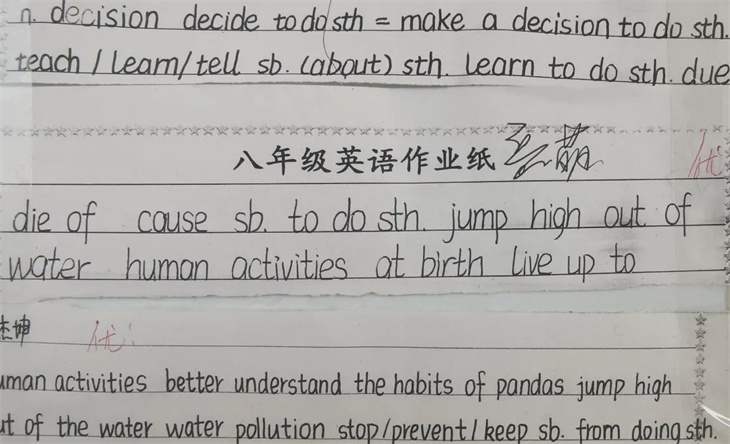 n. decision decide to do sth = make a decision to do sth.
teach / learn/tell sb. (about) sth. learn to do sth. due
八年级英语作业纸
优
die of cause sb. to do sth. jump high out of
water human activities at birth live up to
坤 优
uman activities better understand the habits of pandas jump high
ut of the water water pollution stop/prevent/keep sb. from doing sth.